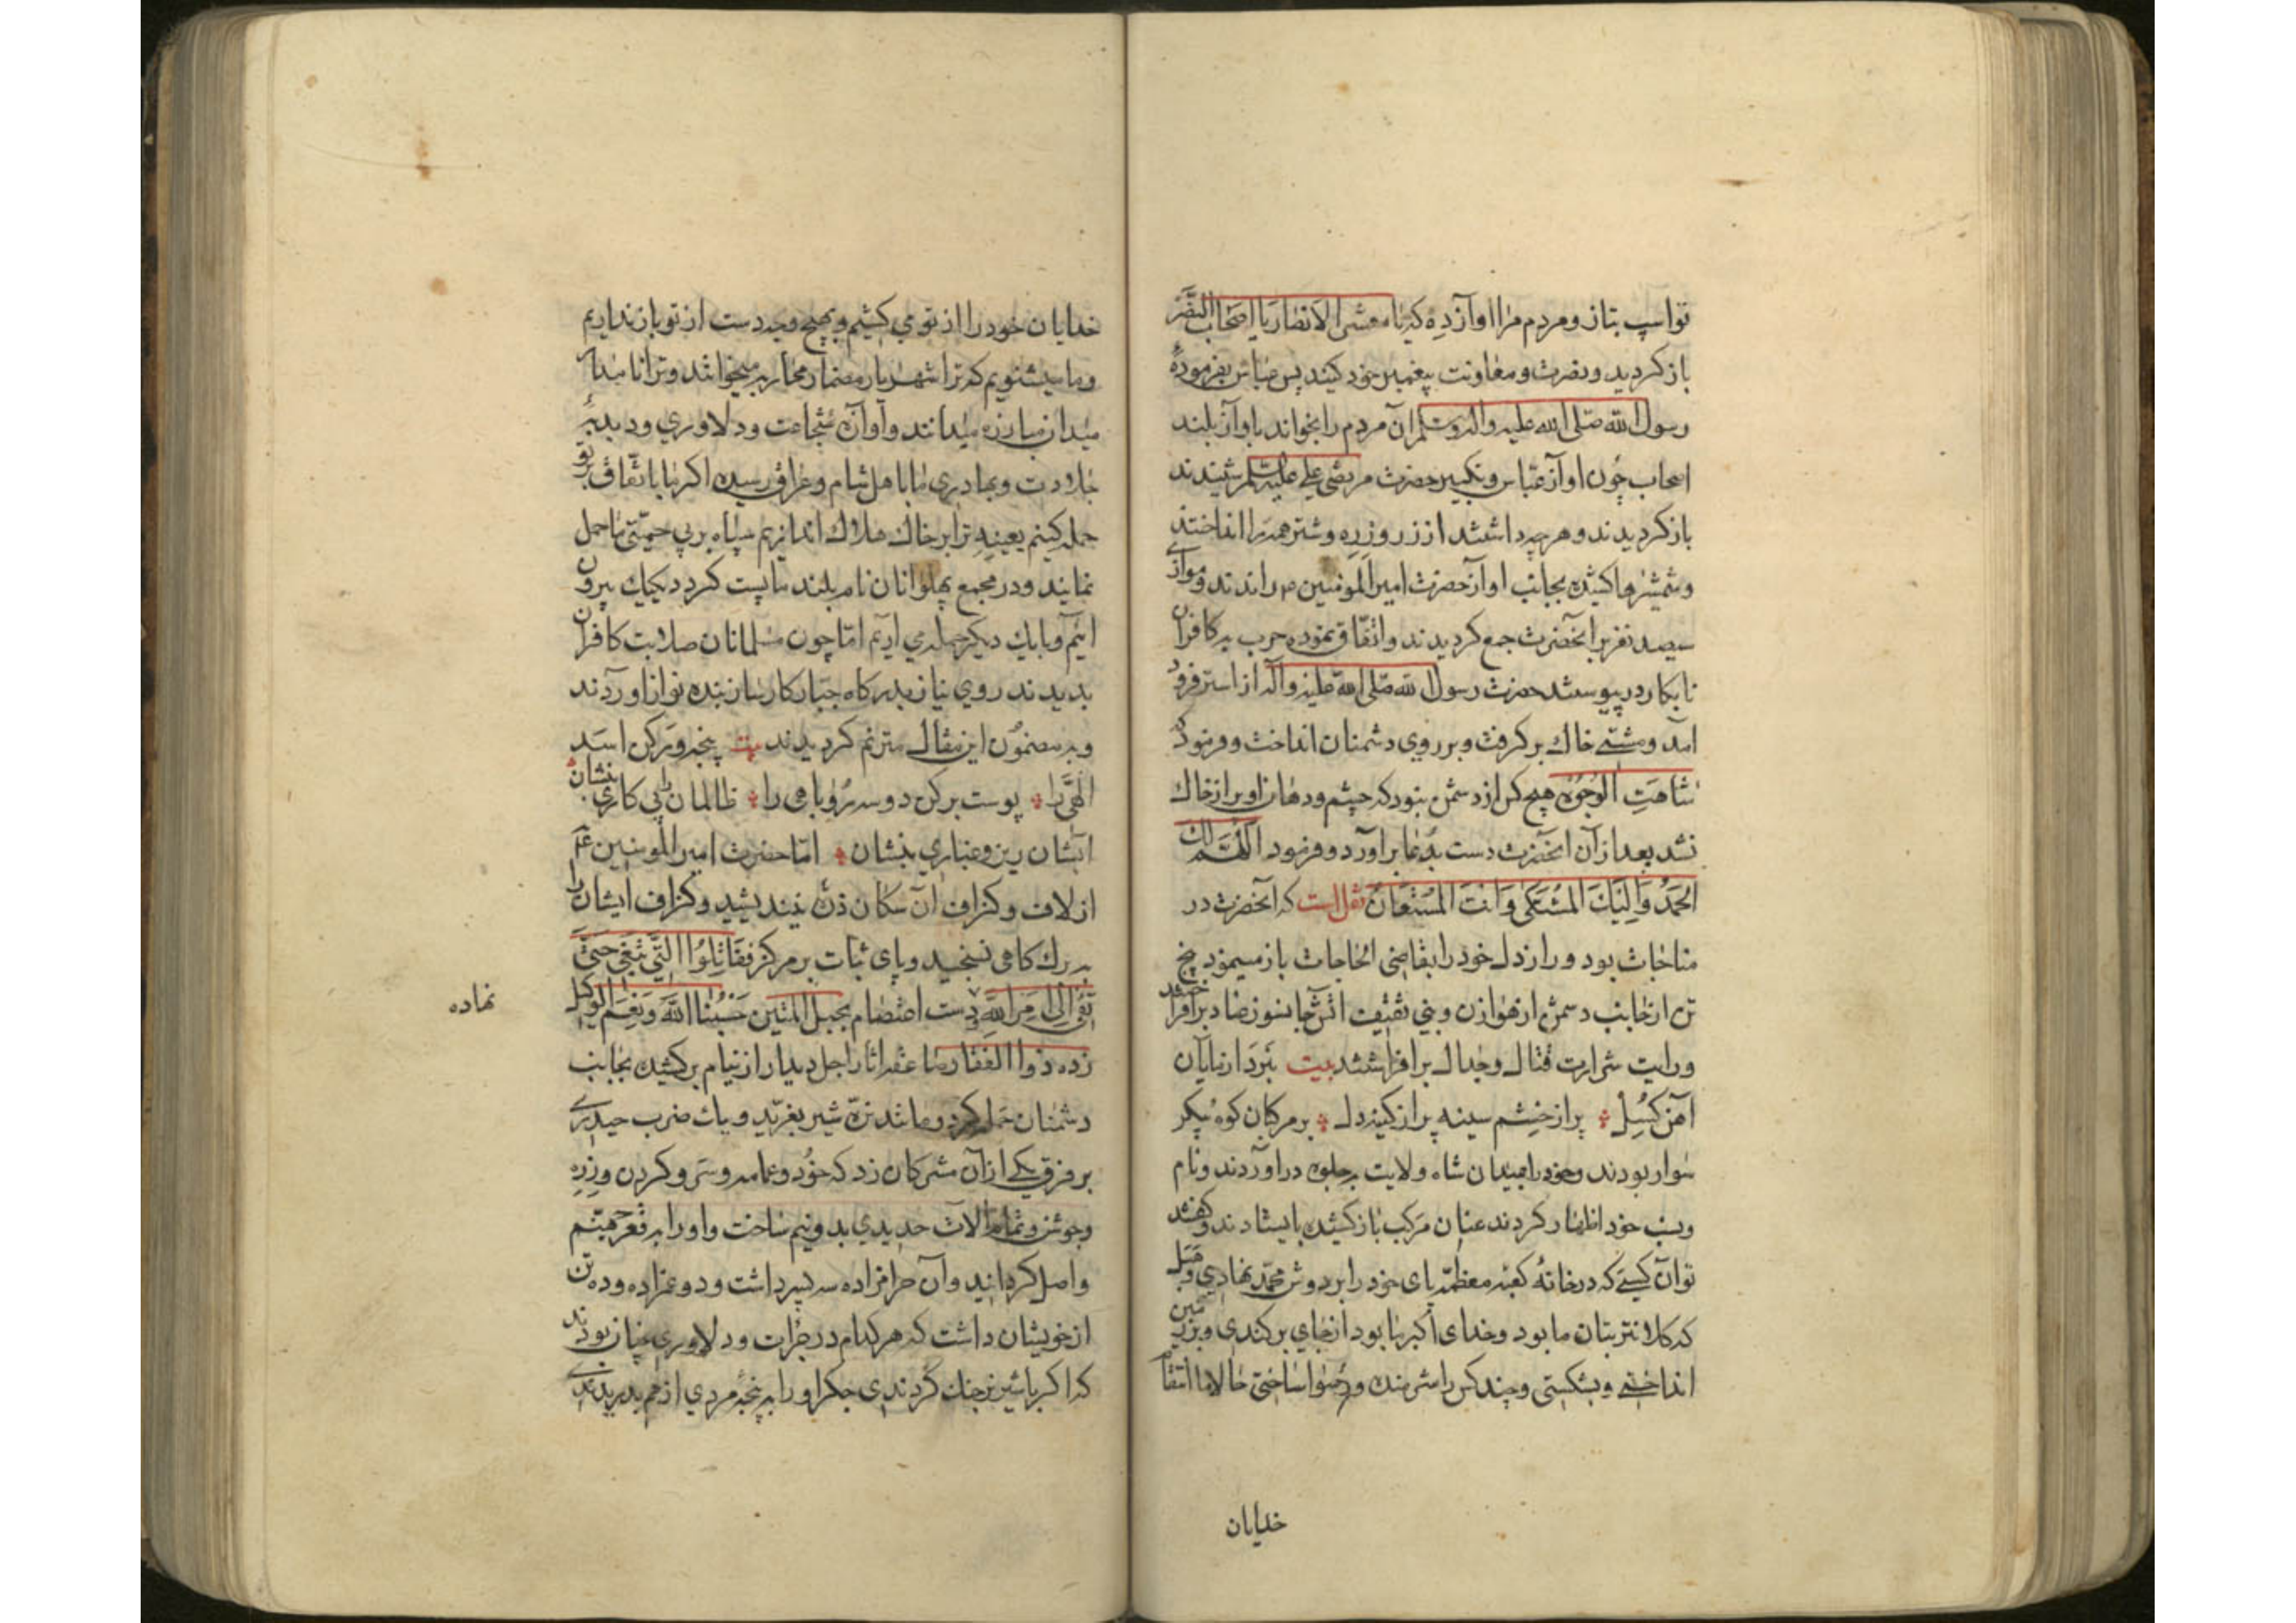 تو اسپ بتاز و مردم مرا اواز ده که یا معشر الانصار یا اصحاب
باز کردید و نصرت و معاونت پیغمبر خود کنید پس عباس بفرموده
رسول الله صلی الله علیه واله وسلم ان مردم را بخواند باواز بلند
اصحاب چون اواز عباس و تکبیر حضرت مرتضی علی علیه السلم شنیدند
باز کردیدند و هر چه داشتند از زر و زره و شتر همه را انداختند
و شمشیرها کشیده بجانب اواز حضرت امیر المومنین راندند و موازی
سیصد نفر بر آنحضرت جمع کردیدند و اتفاق نموده حرب به کافران
نابکار در پیوستند حضرت رسول الله صلی الله علیه واله از استر فرود
آمد و مشتی خاک بر کرفت و بر روی دشمنان انداخت و فرمود که
شاهَتِ الوُجُوُه هیچ کس از دشمن نبود که چشم و دهان او پر از خاک
نشد بعد از آن انحضرت دست بدعا براورد و فرمود اللهم لک
الحَمدُ وَ اِلَیکَ المُشتَکی وَ انتَ المُستَعانُ نقل است که آنحضرت در
مناجات بود و راز دل خود را بقاضی الحاجات باز مینمود پنج
تن از جانب دشمن از هوازن و بنی ثقیف
ورایت شرارت قتال و جدال برافراشتند بیت نبرد ازمایان
آهن کسل پر از خشم سینه پر از کینه دل بر مرکبان کوه پیکر
سوار بودند و خود را بمیدان شاه ولایت بجلوه دراوردند و نام
و نسب خود اظهار کردند عنان مرکب باز کشیده بایستادند و کفتند
تو آن کسی که در خانه کعبه معظمه پای خود را بر دوش محمد نهادی و هبل
که کلانتر بتان ما بود و خدای اکبر ما بود از جای برکندی و بزمین
انداختی و بشکستی و چند کس را شرمنده و رسوا ساختی حالا ما انتقام
خدایان
خدایان خود را از تو می کشیم و بهیچ وجه دست از تو باز نداریم
و ما میشنویم که ترا شهریار مضمار محاربه میخوانند و ترا نامدار
میدان مبارزه میدانند و اوازه شجاعت و دلاوری و دبدبه
جلادت و بهادری ما با اهل شام و عراق رسیده اکر ما باتفاق بر تو
حمله کنیم بعینه ترا بر خاک هلاک اندازیم سپاه بر بی حمیتی ما حمل
نمایند و در مجمع پهلوانان نام بلند ما پست کردد یکیک بیرون
ائیم و با یک دیکر حمله می اریم اما چون مسلمانان صلابت کافران
بدیدند روی نیاز بدرکاه جبار کارساز بنده نواز اوردند
و به مضمون این مقال مترنم کردیدند بیت پنجه ور کن اسد
الهی را پوست برکن دو سه روباهی را ظالمان را پی کاری بنشان
ابشان ریز و غباری بنشان اما حضرت امیر المومنین
از لاف و کزاف آن سکان ذره نیندیشید و کزاف ایشان را
به برک کاهی نسنجید و پای ثبات بر مرکز فَقَاتِلُوا الَّتی تَبغی حَتّی
تَفیَ الی اَمرِ الله دست اعتصام بحبل المتین حَسبُنا اللهُ وَ نِعمَ الوَکیل
نهاده
زده ذوالفقار صاعقه اثار اجل دیدار از نیام برکشیده بجانب
دشمنان حمله کرد و مانند نره شیر بغرید و یک ضرب حیدری
بر فرق یکی از آن مشرکان زد که خود و عمامه و سر و کردن و زره
و جوشن و تمام الات حدیدی بدو نیم ساخت و اورا به قعر جهنم
واصل کردانید و آن حرامزاده سه پسر داشت و دو عمزاده و ده تن
از خویشان داشت که هر کدام در جرات و دلاوری چنان بودند
که اکر با شیر نر جنک کردندی جکر او را به پنجه مردی از هم بدریدندی